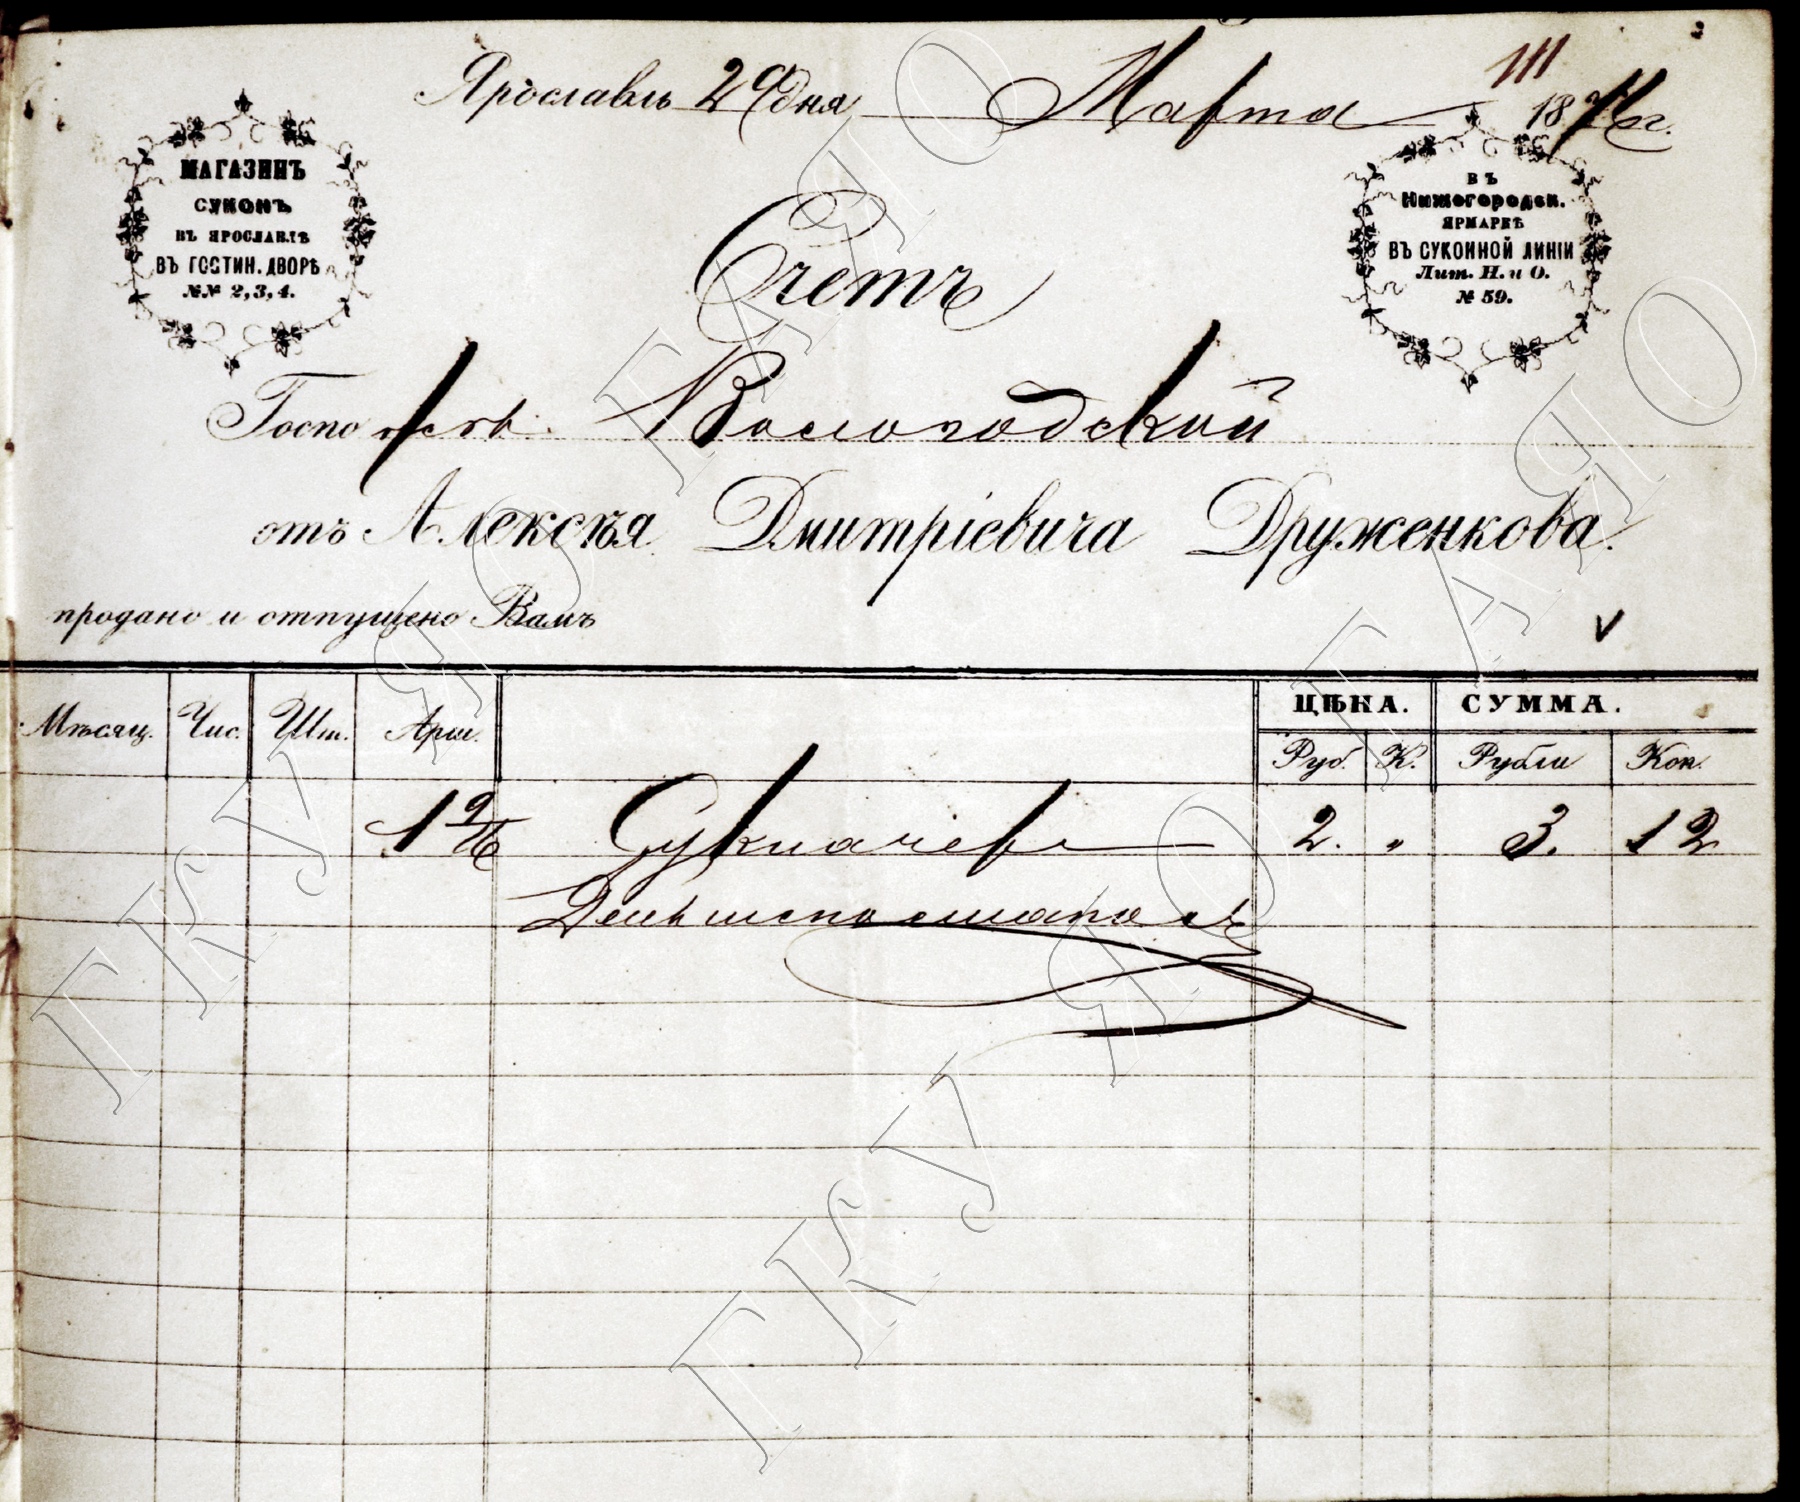 Ярославль 29 дня Марта 1871 г.
111
МАГАЗИНЪ
СУКОНЪ
ВЪ ЯРОСЛАВЛѢ
ВЪ ГОСТИН. ДВОРѢ
№№ 2, 3, 4.
ВЪ
Нижегородск.
ЯРМАРКѢ
ВЪ СУКОННОЙ ЛИНІИ
Лит. Н. и О.
№ 59.
Счетъ
Госпо Вологодской
отъ Алексѣя Дмитріевича Друженкова.
продано и отпущено Вамъ
Мѣсяц. Чис. Шт. Арш. ЦѢНА. СУММА.
Руб. К. Рубли Коп.
1 9/16 2. „ 3. 12
ГКУ ЯО ГАЯО
ГКУ ЯО ГАЯО